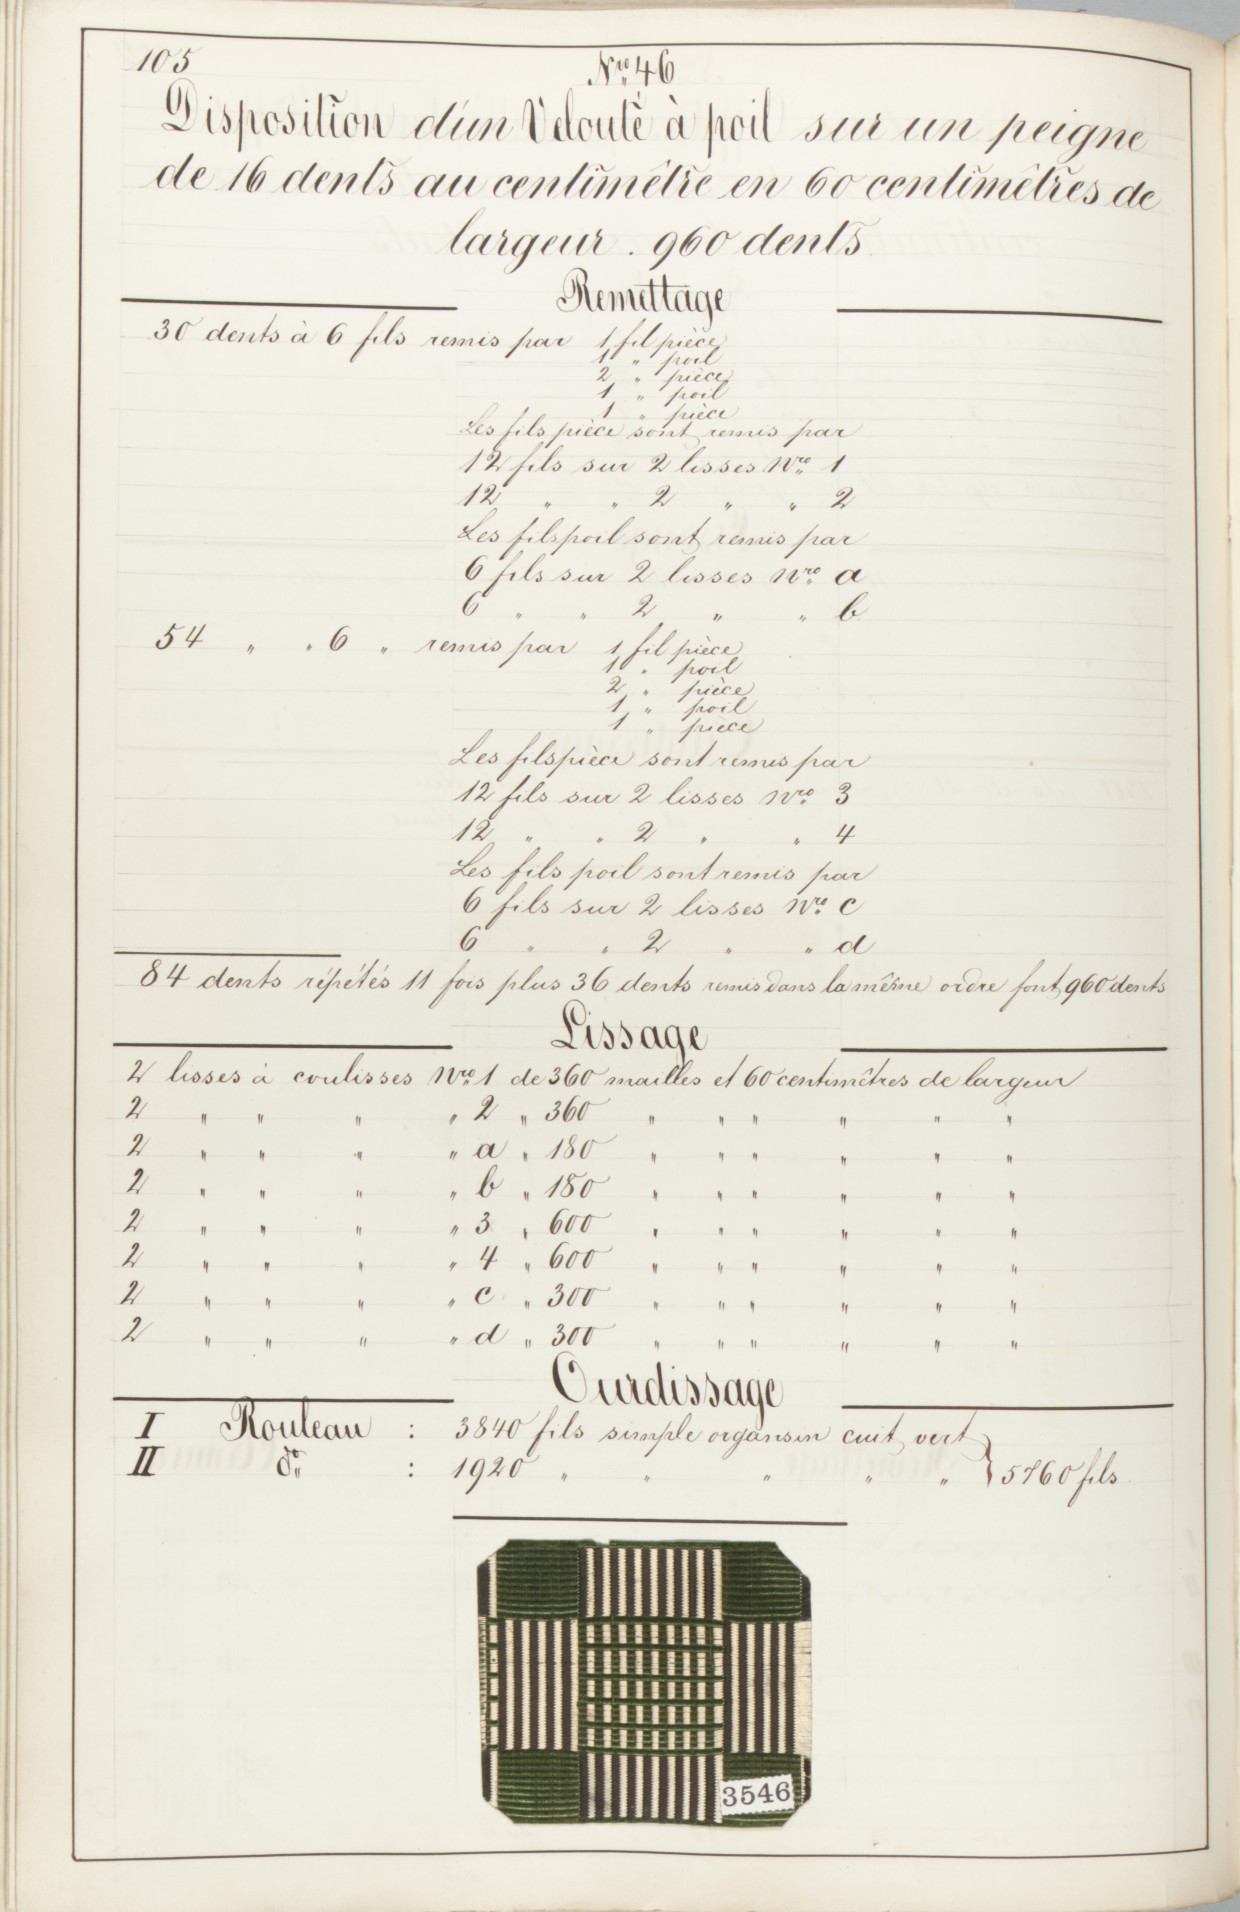 105
Nro 46
Disposition d'un Velouté à poil sur un peigne
de 16 dents au centimètre en 60 centimètres de
largeur. 960 dents
Remettage
30 dents à 6 fils remis par 1 fil pièce
1 " poil
2 " pièce
1 " poil
1 " pièce
Les fils pièce sont remis par
12 fils sur 2 lisses Nro 1
12 " " 2 " " 2
Les fils poil sont remis par
6 fils sur 2 lisses Nro a
6 " " 2 " " b
54 " " 6 " remis par 1 fil pièce
1 " poil
2 " pièce
1 " poil
1 " pièce
Les fils pièce sont remis par
12 fils sur 2 lisses Nro 3
12 " " 2 " " 4
Les fils poil sont remis par
6 fils sur 2 lisses Nro c
6 " " 2 " " d
84 dents répétés 11 fois plus 36 dents remis dans la même ordre font 960 dents
Lissage
2 lisses à coulisses Nro 1 de 360 mailles et 60 centimètres de largeur
2 " " " " 2 " 360 " " " " " "
2 " " " " a " 180 " " " " " "
2 " " " " b " 180 " " " " " "
2 " " " " 3 " 600 " " " " " "
2 " " " " 4 " 600 " " " " " "
2 " " " " c " 300 " " " " " "
2 " " " " d " 300 " " " " " "
Ourdissage
I Rouleau : 3840 fils simple organsin cuit vert
II do : 1920 " " " " " } 5760 fils
3546